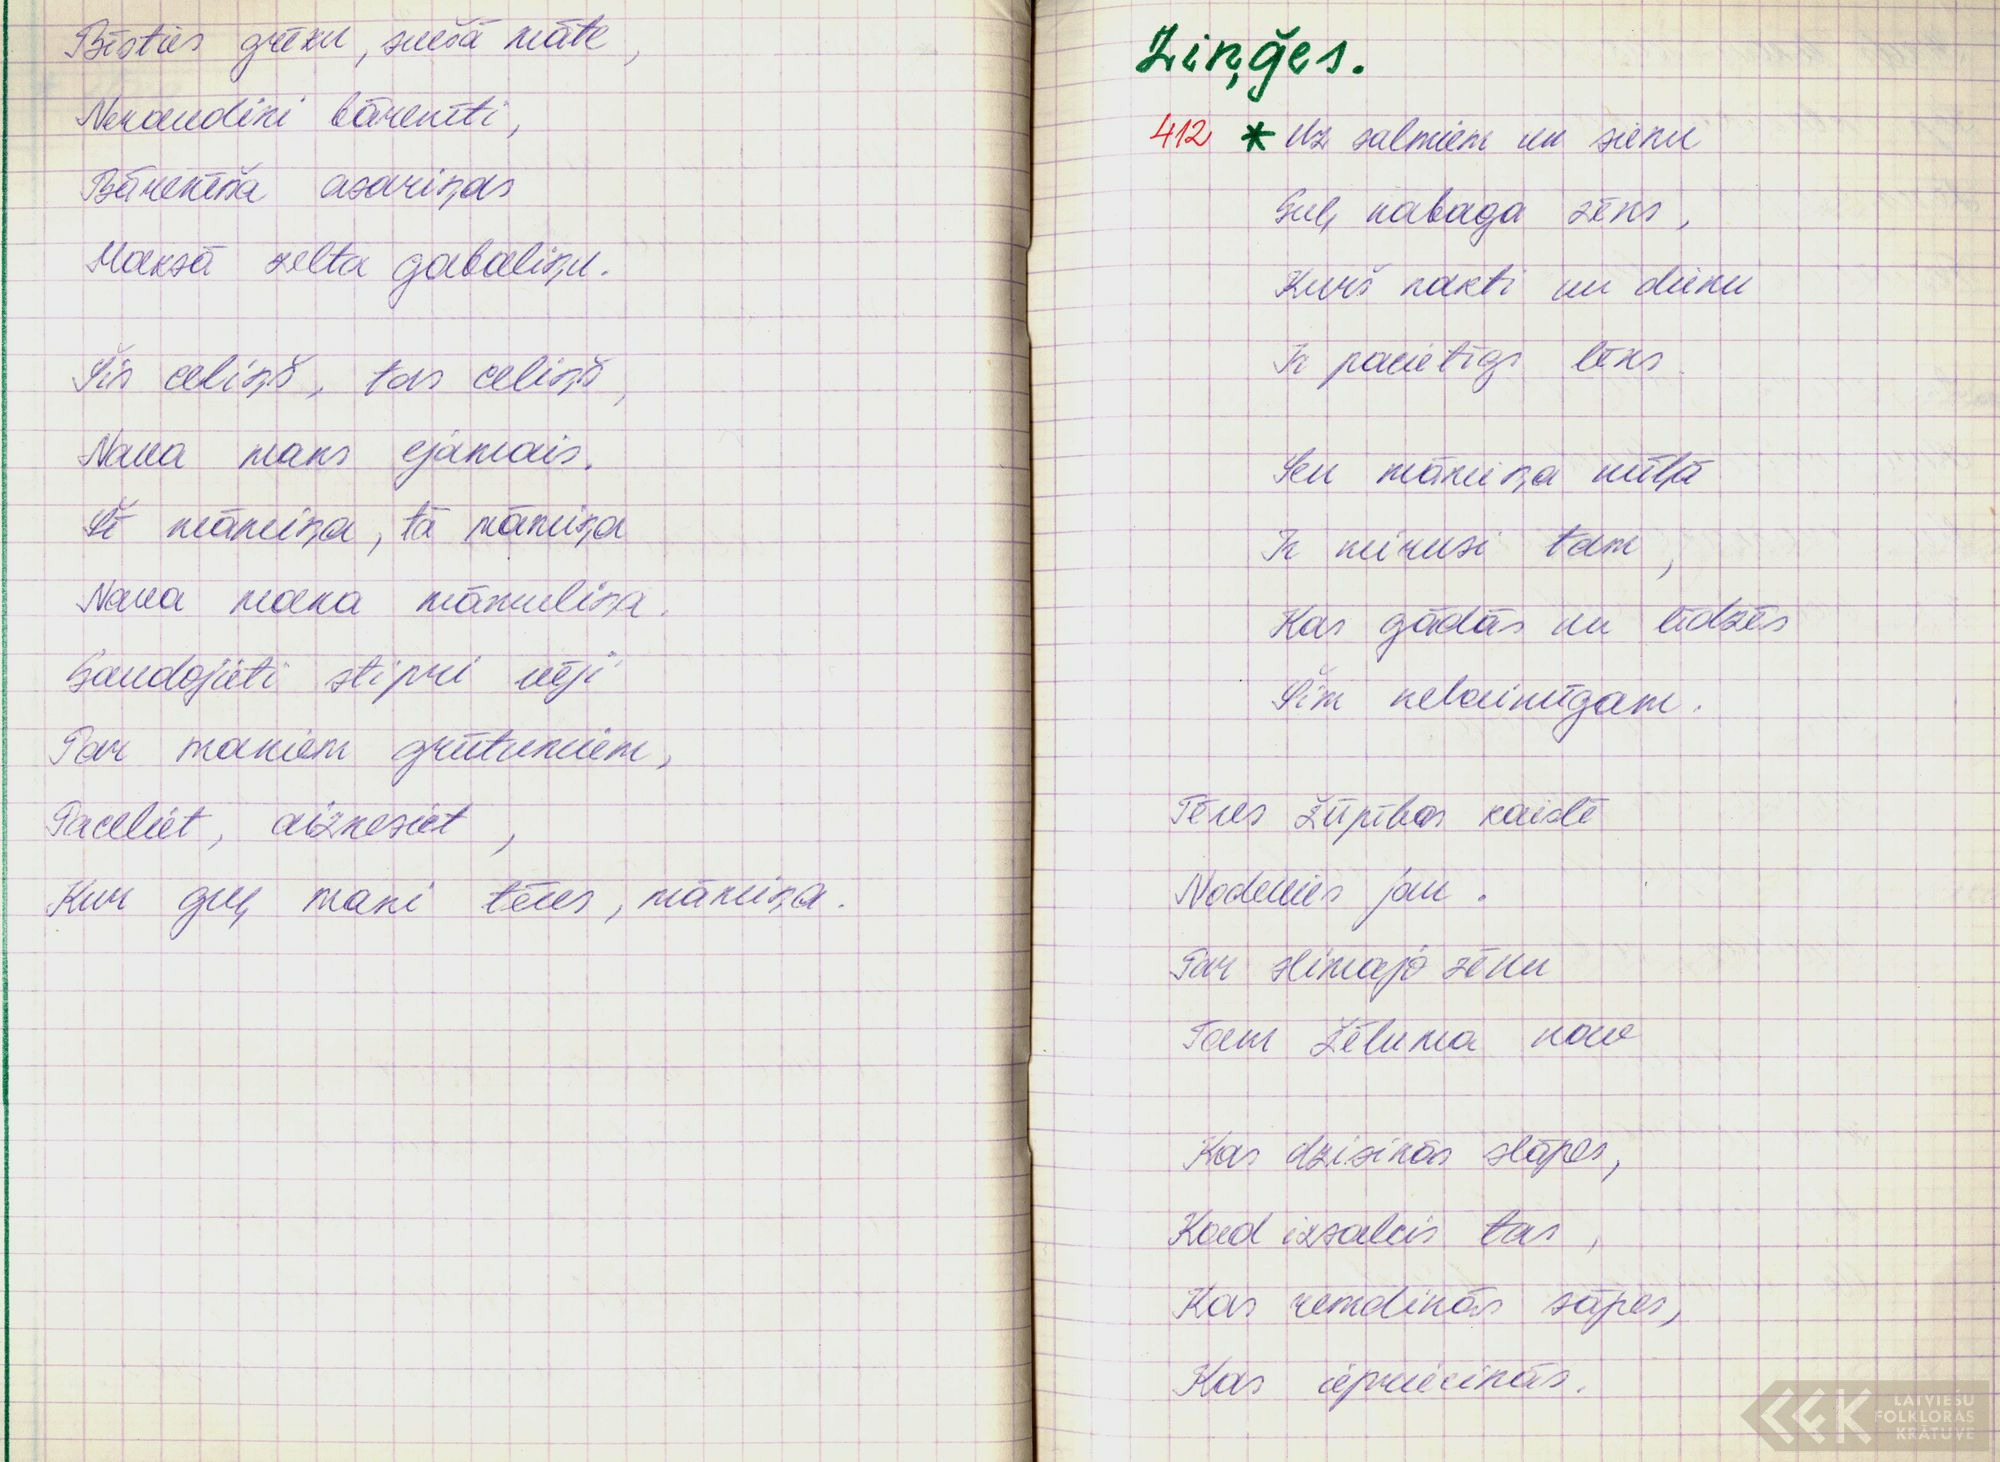 Bīsties grēku, svešā māte,
Neraudini bārenīti,
Bārenīša asariņas
Maksā zelta gabaliņu.
Šis celiņš, tas celiņš,
Nava mans ejamais.
Šī māmiņa, tā māmiņa
Nava mana māmuliņa.
Gaudojieti stipri vēji
Par maniem grūtumiem,
Paceliet, aiznesiet,
Kur guļ mani tēvs, māmiņa.
Ziņģes.
412 * Uz salmiem un sienu
Guļ nabaga zēns,
Kurš nakti un dienu
Ir pacietīgs lēns
Sen māmiņa mīļā
Ir mirusi tam,
Kas gādās un līdzēs
Šim nelaimīgam.
Tēvs žūpības kaislē
Nodevies jau.
Par slimajo zēnu
Tam žēluma nav
Kas dzisinās slāpes,
Kad izsalcis tas,
Kas remdinās sāpes,
Kas iepriecinās.
LATVIEŠU
FOLKLORAS
KRĀTUVE